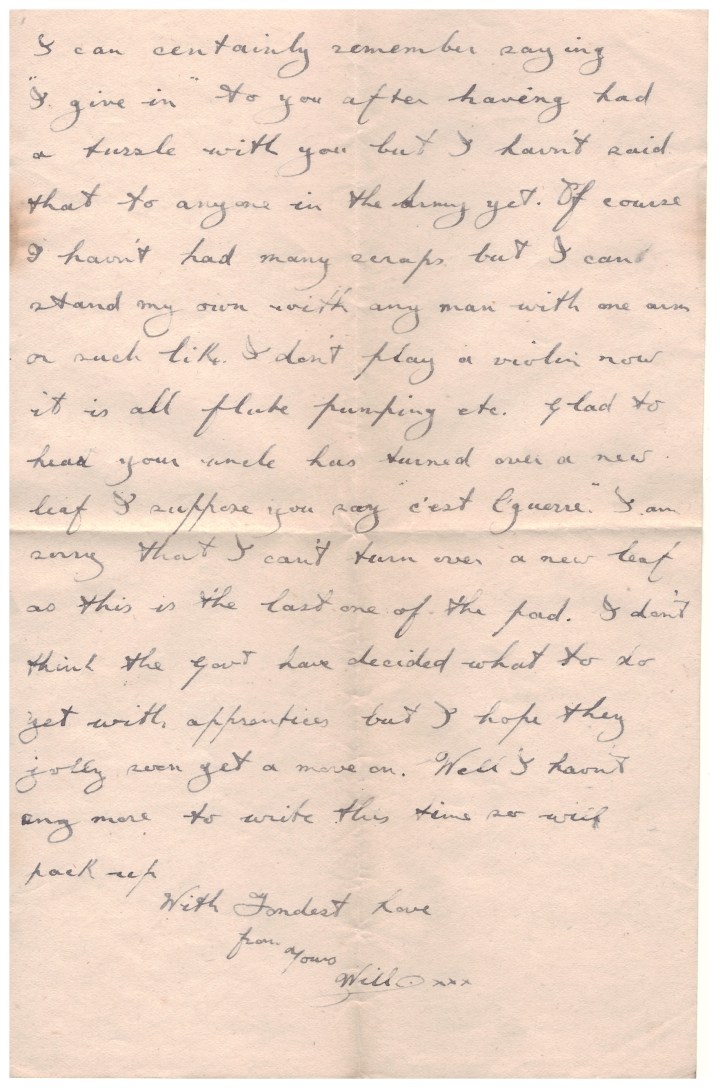 I can certainly remember saying
"I give in" to you after having had
a tussle with you but I havn't said
that to anyone in the Army yet. Of course
I havn't had many scraps but I can
stand my own with any man with one arm
or such like. I don't play a violin now
it is all flute pumping etc. Glad to
hear your uncle has turned over a new
leaf I suppose you say "c'est l'guerre." I am
sorry that I can't turn over a new leaf
as this is the last one of the pad. I don't
think the Govt have decided what to do
yet with apprentices but I hope they
jolly soon get a move on. Well I havn't
any more to write this time so will
pack up
With Fondest Love
from Yours
Will xxx